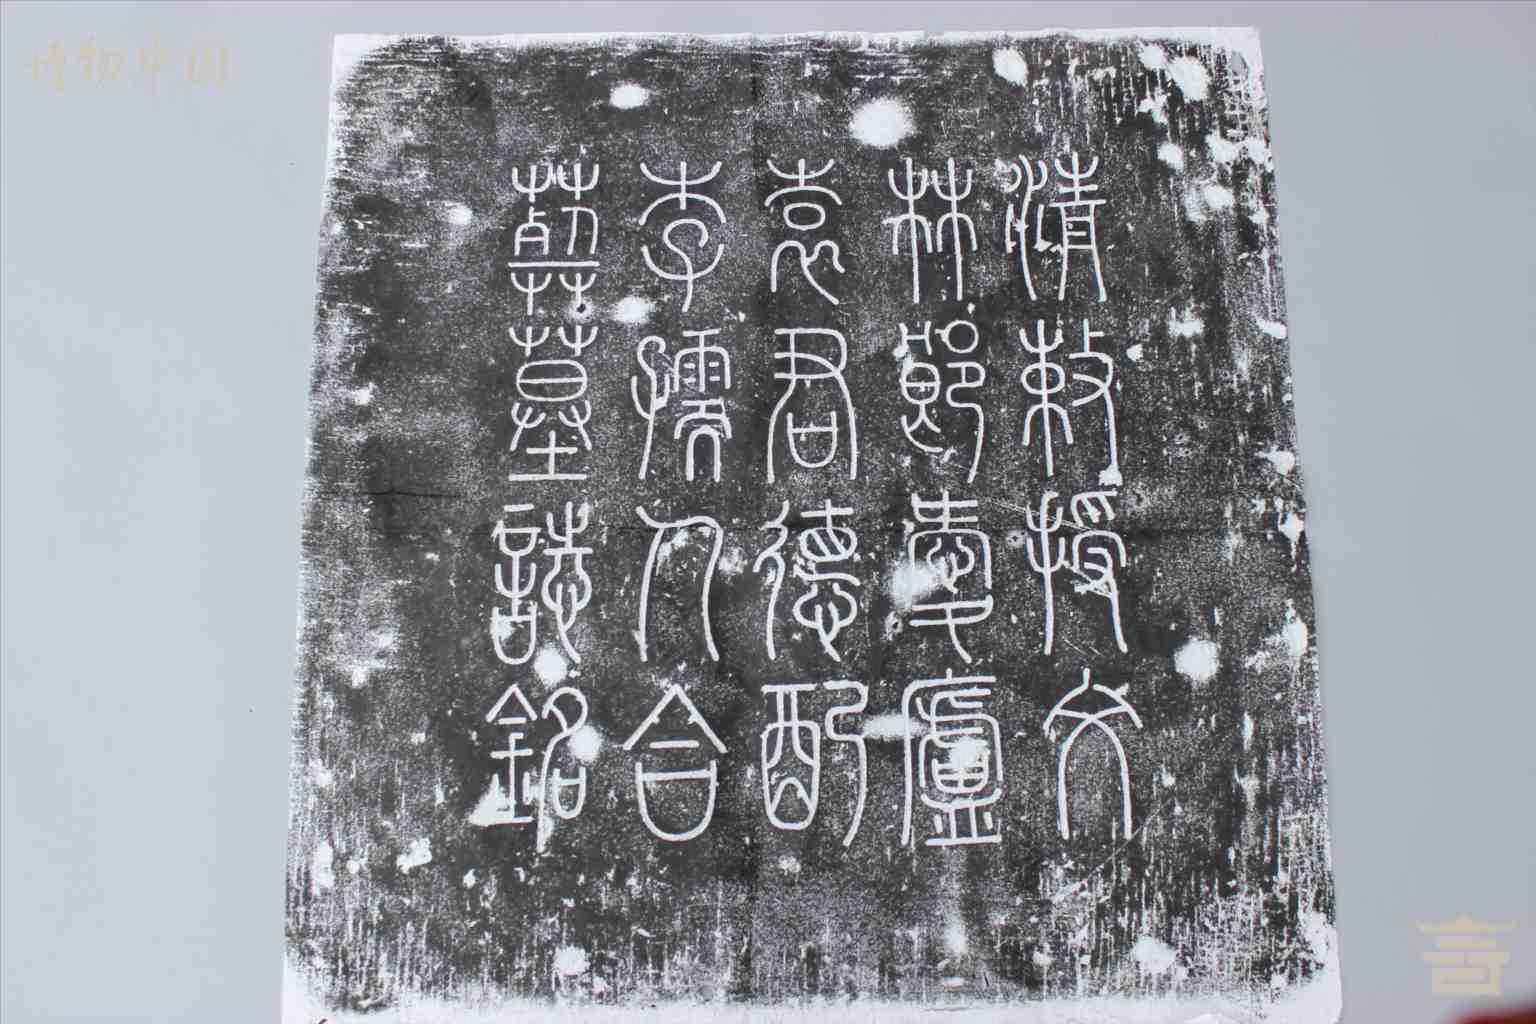 博物中国
清敕授文
林郎愛廬
袁君德配
李孺人合
葬墓誌銘